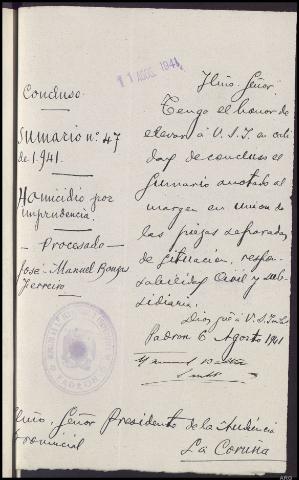 11 AGOS. 1941
Concluso
Sumario nº. 47
de 1.941.
Homicidio por
imprudencia.
- Procesado -
Jose Manuel
Ferreiro
Ilmo. Señor.
Tengo el honor de
elevar á V.S.I. en cali
dad de concluso el
Sumario anotado al
margen en union de
las piezas separadas
de situación, respon-
sabilidad Civil y sub-
sidiaria.
Dios gue á V.S.I. m. a.
Padron 6 Agosto 1941
PADRON
Ilmo. Señor Presidente de la Audiencia
Provincial
La Coruña
ARG